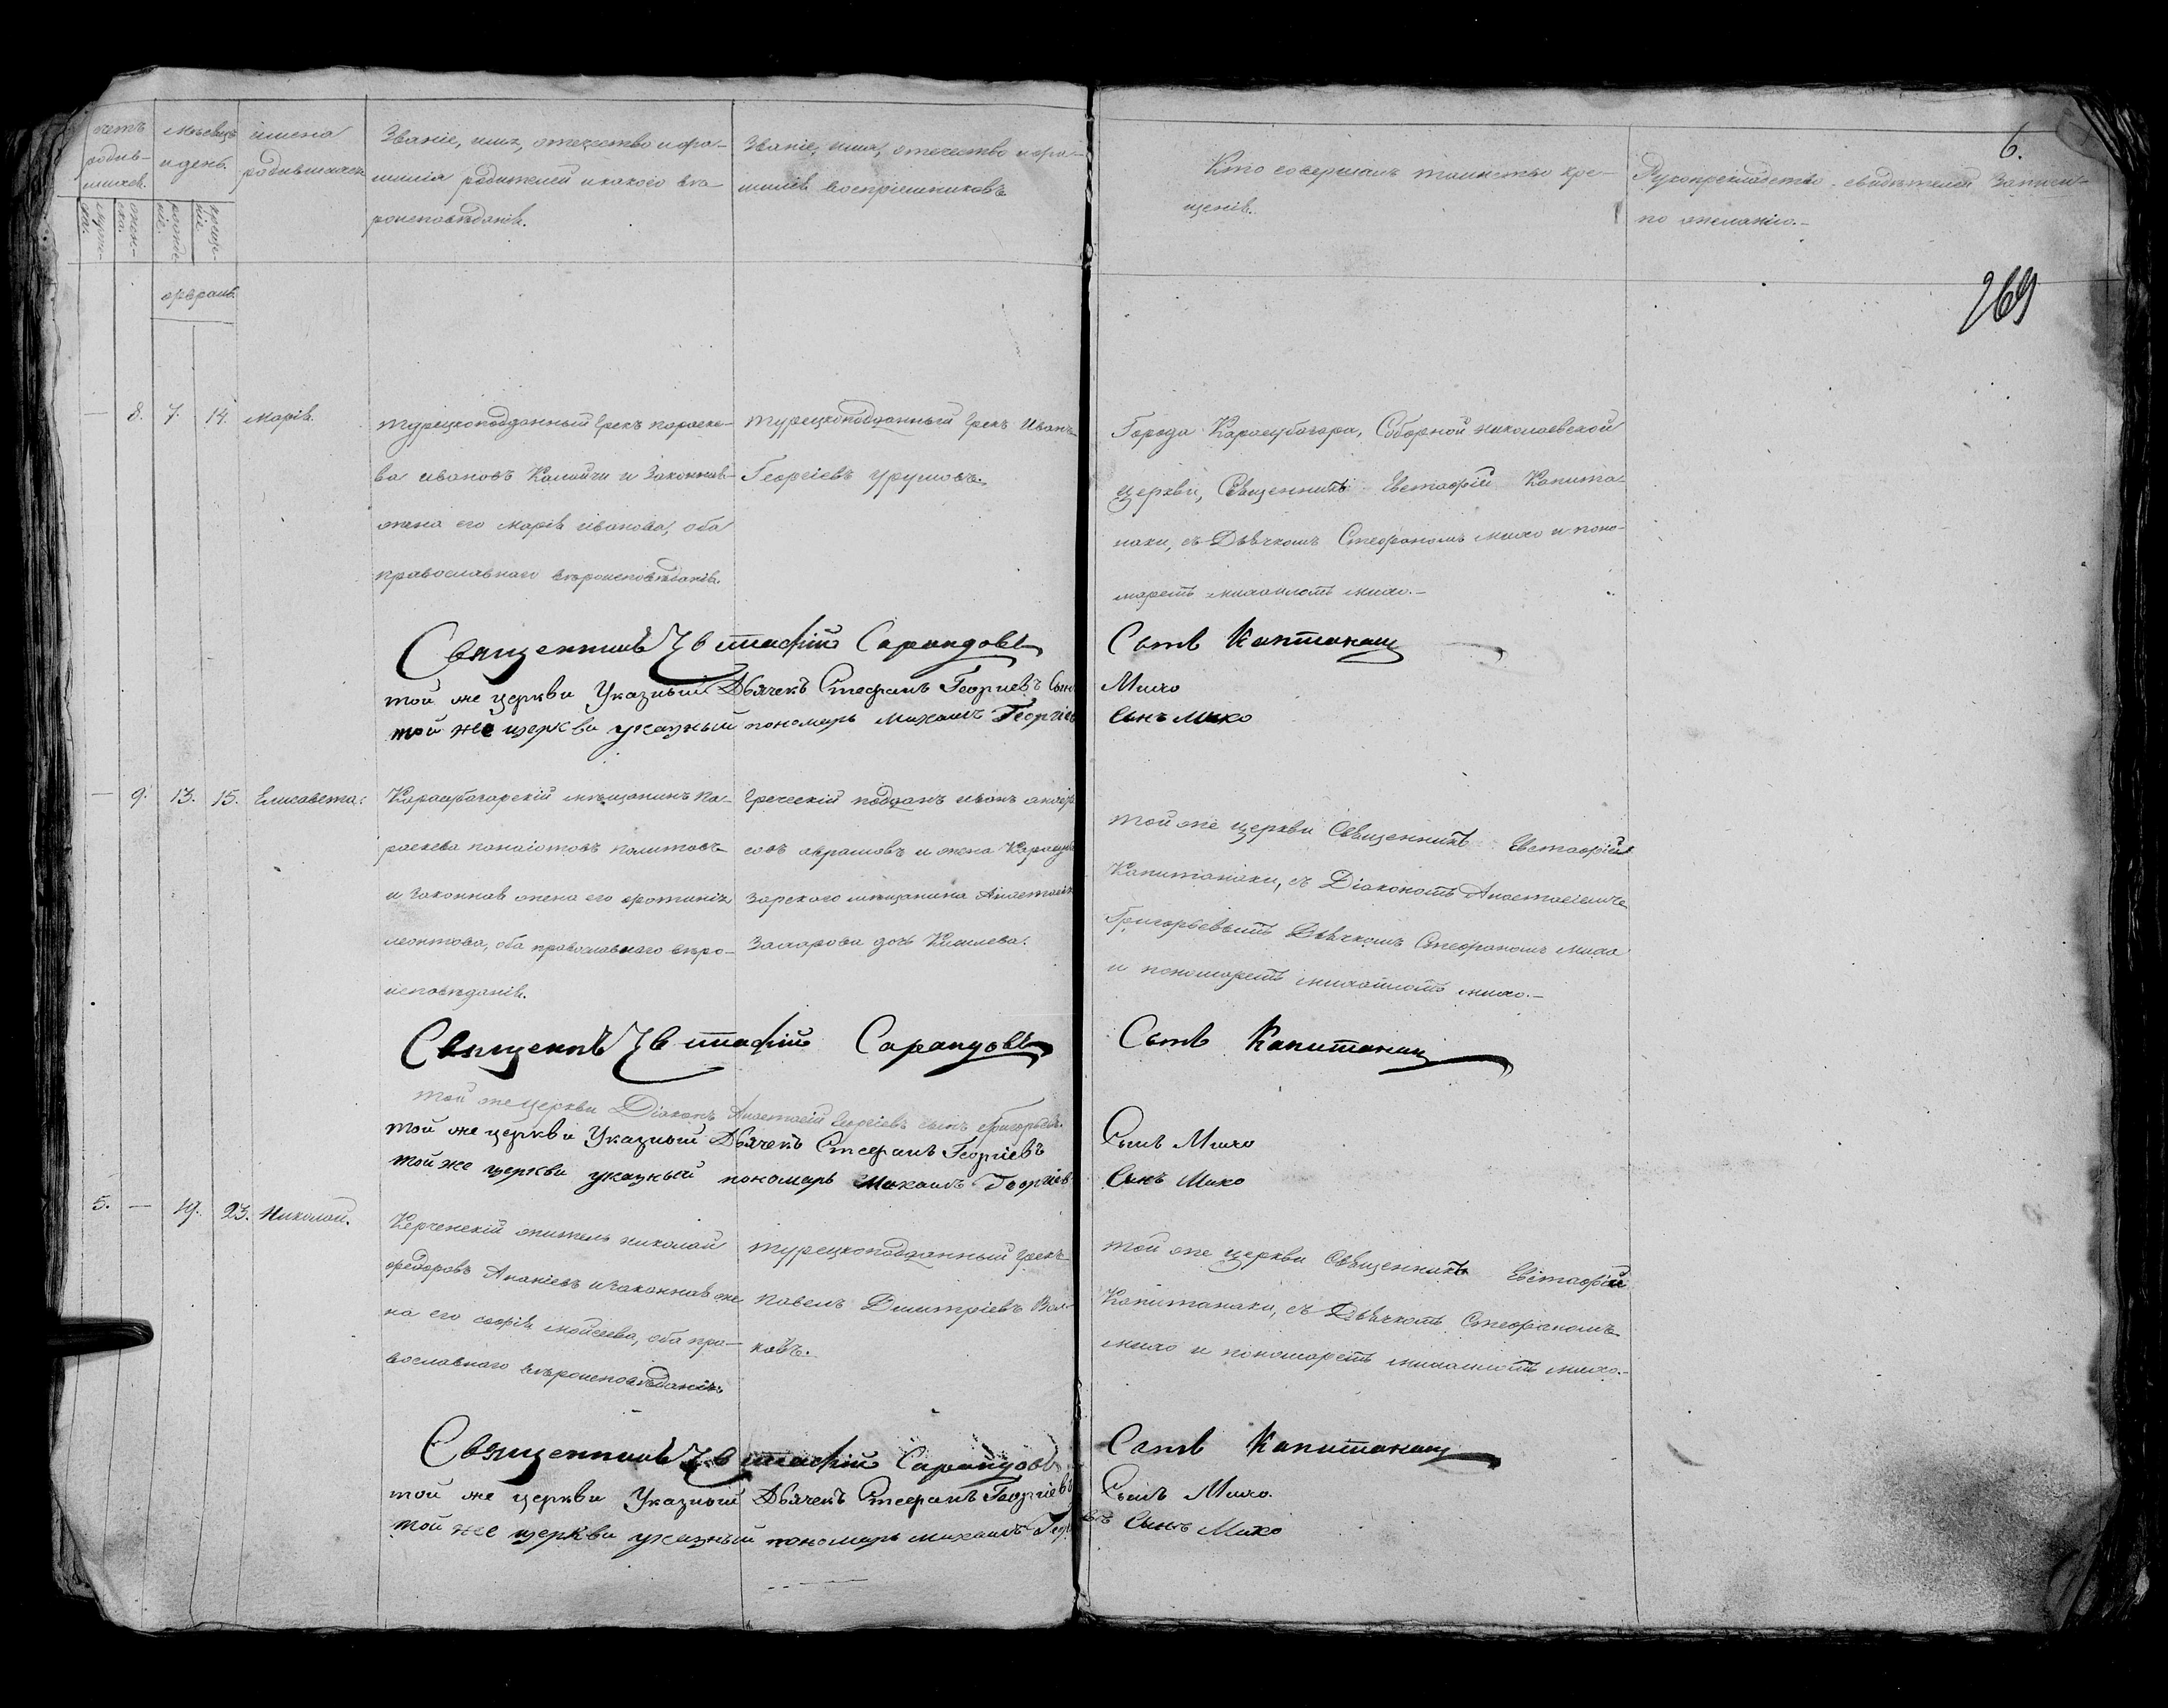 6.
269
счетъ родив-шихся.
мѣсяцъ и день.
имена родившихся
Званіе, имя, отечество и фа-
милія родителей и какого вѣ-
роисповѣданія.
Званіе, имя, отечество и фа-
милія воспріемниковъ
Кто совершалъ таинство кре-
щенія.
Рукоприкладство свидѣтелей записи
по желанію.
февраль
8. 7. 14. Марія.
турецкоподданный Грекъ параске-
ва ивановъ и законная
жена его марія иванова, оба
православнаго вѣроисповѣданія.
турецкоподданный Грекъ Иванъ
Георгіевъ Урумовъ.
Города Карасубазара, Соборной николаевской
церкви, Священникъ Евстафій Капита-
наки, съ Дьячкомъ Стефаномъ михо и поно-
маремъ михаиломъ михо.
Священникъ Евстафій Сарандовъ Сынъ Капитанаки
той же церкви Указный Дьячекъ Стефанъ Георгиевъ Сынъ Михо
той же церкви указный пономарь Михаилъ Георгіевъ Сынъ Михо
9. 13. 15. Елисавета.
Карасубазарскій мѣщанинъ Па-
раскева панаіотовъ
и законная жена его фотинія
леонтова, оба православнаго вѣро-
исповѣданія.
Греческій подданъ иванъ
совъ аврамовъ и жена Карасуба
зарскаго мѣщанина Анастасія
Захарова дочь
той же церкви Священникъ Евстафій
Капитанаки, съ Діакономъ Анастасіемъ
Григорьевымъ Дьячкомъ Стефаномъ михо
и пономаремъ михаиломъ михо.
Священникъ Евстафій Сарандовъ Сынъ Капитанаки
той же церкви Діаконъ Анастасій Георгіевъ сынъ Григорьевъ.
той же церкви Указный Дьячекъ Стефанъ Георгіевъ Сынъ Михо
той же церкви указный пономарь Михаилъ Георгіевъ Сынъ Михо
5. 19. 23. Николай.
Керченскій житель николай
федоровъ Ананіевъ и законная же-
на его софія мойсеева, оба пра-
вославнаго вѣроисповѣданія.
турецкоподданный Грекъ
павелъ Димитріевъ Вол-
ковъ.
той же церкви Священникъ Евстафій
Капитанаки, съ Дьячкомъ Стефаномъ
михо и пономаремъ михаиломъ михо.
Священникъ Евстафій Сарандовъ Сынъ Капитанаки
той же церкви Указный Дьячекъ Стефанъ Георгиевъ Сынъ Михо.
той же церкви указный пономарь михаилъ Георгіевъ Сынъ Михо